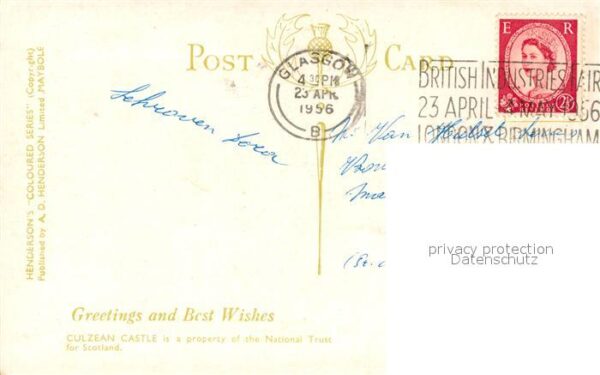 POST CARD
E R
GLASGOW
4 30 PM
23 APR
1956
B
BRITISH INDUSTRIES FAIR
23 APRIL 4 MAY 1956
LONDON BIRMINGHAM
2½
Van
HENDERSON'S "COLOURED SERIES" (Copyright)
Published by A. D. HENDERSON Limited, MAYBOLE
privacy protection
Datenschutz
Greetings and Best Wishes
CULZEAN CASTLE is a property of the National Trust
for Scotland.